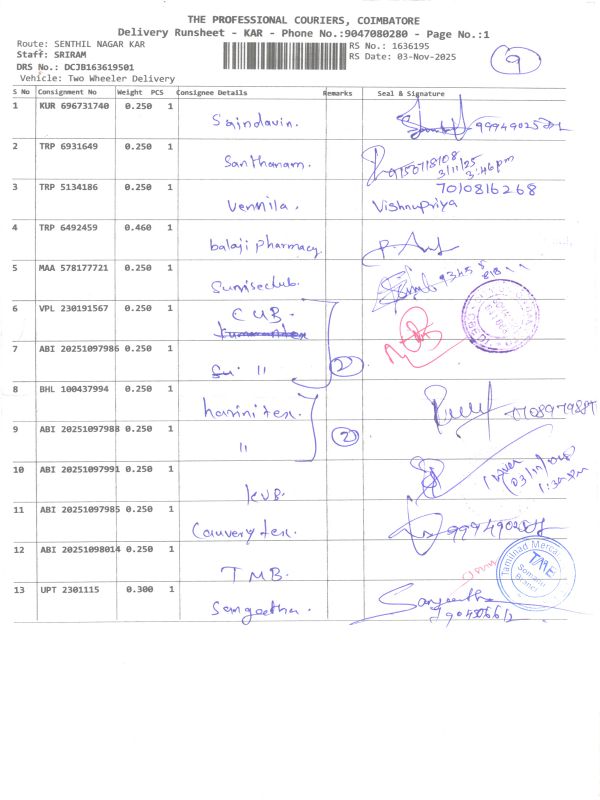 THE PROFESSIONAL COURIERS, COIMBATORE
Delivery Runsheet - KAR - Phone No.:9047080280 - Page No.:1
Route: SENTHIL NAGAR KAR RS No.: 1636195
Staff: SRIRAM RS Date: 03-Nov-2025
DRS No.: DCJB163619501
Vehicle: Two Wheeler Delivery
9
S No Consignment No Weight PCS Consignee Details Remarks Seal & Signature
1 KUR 696731740 0.250 1
2 TRP 6931649 0.250 1 Santhanam. 9150718108 3/11/25 3:46pm
3 TRP 5134186 0.250 1 Vennila. 7010816268 Vishnupriya
4 TRP 6492459 0.460 1 balaji pharmacy
5 MAA 578177721 0.250 1
6 VPL 230191567 0.250 1 CUB.
7 ABI 20251097986 0.250 1 11 2
8 BHL 100437994 0.250 1
9 ABI 20251097988 0.250 1 11 2
10 ABI 20251097991 0.250 1 KVB.
11 ABI 20251097985 0.250 1 Cauvery tex.
12 ABI 20251098014 0.250 1 TMB.
Tamilnad Merca
Branch
13 UPT 2301115 0.300 1 Sangeetha. Sangeetha